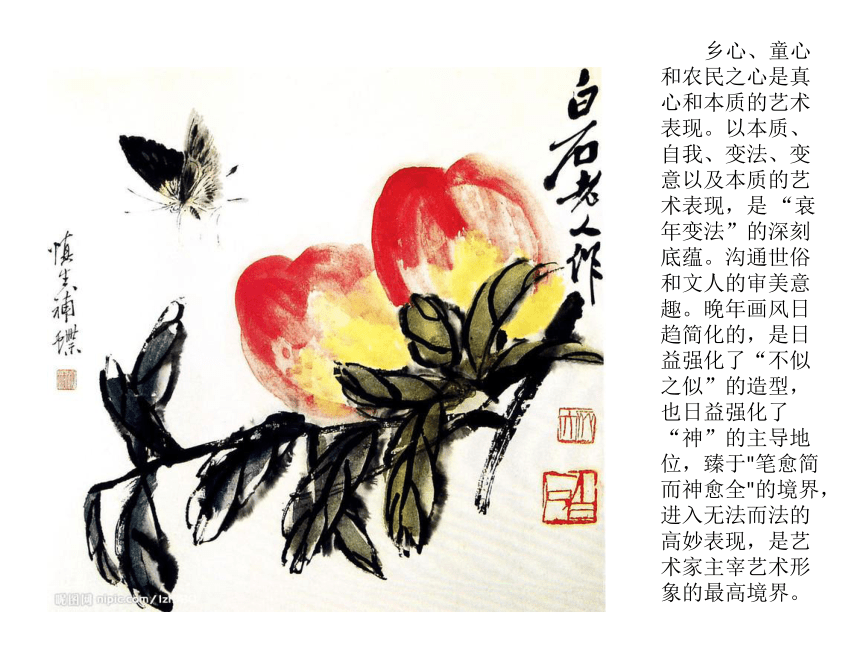 白石老人作
慎生補蝶
乡心、童心
和农民之心是真
心和本质的艺术
表现。以本质、
自我、变法、变
意以及本质的艺
术表现，是 “衰
年变法”的深刻
底蕴。沟通世俗
和文人的审美意
趣。晚年画风日
趋简化的，是日
益强化了“不似
之似”的造型，
也日益强化了
“神”的主导地
位，臻于"笔愈简
而神愈全"的境界，
进入无法而法的
高妙表现，是艺
术家主宰艺术形
象的最高境界。
昵图网 nipic.com/lzh